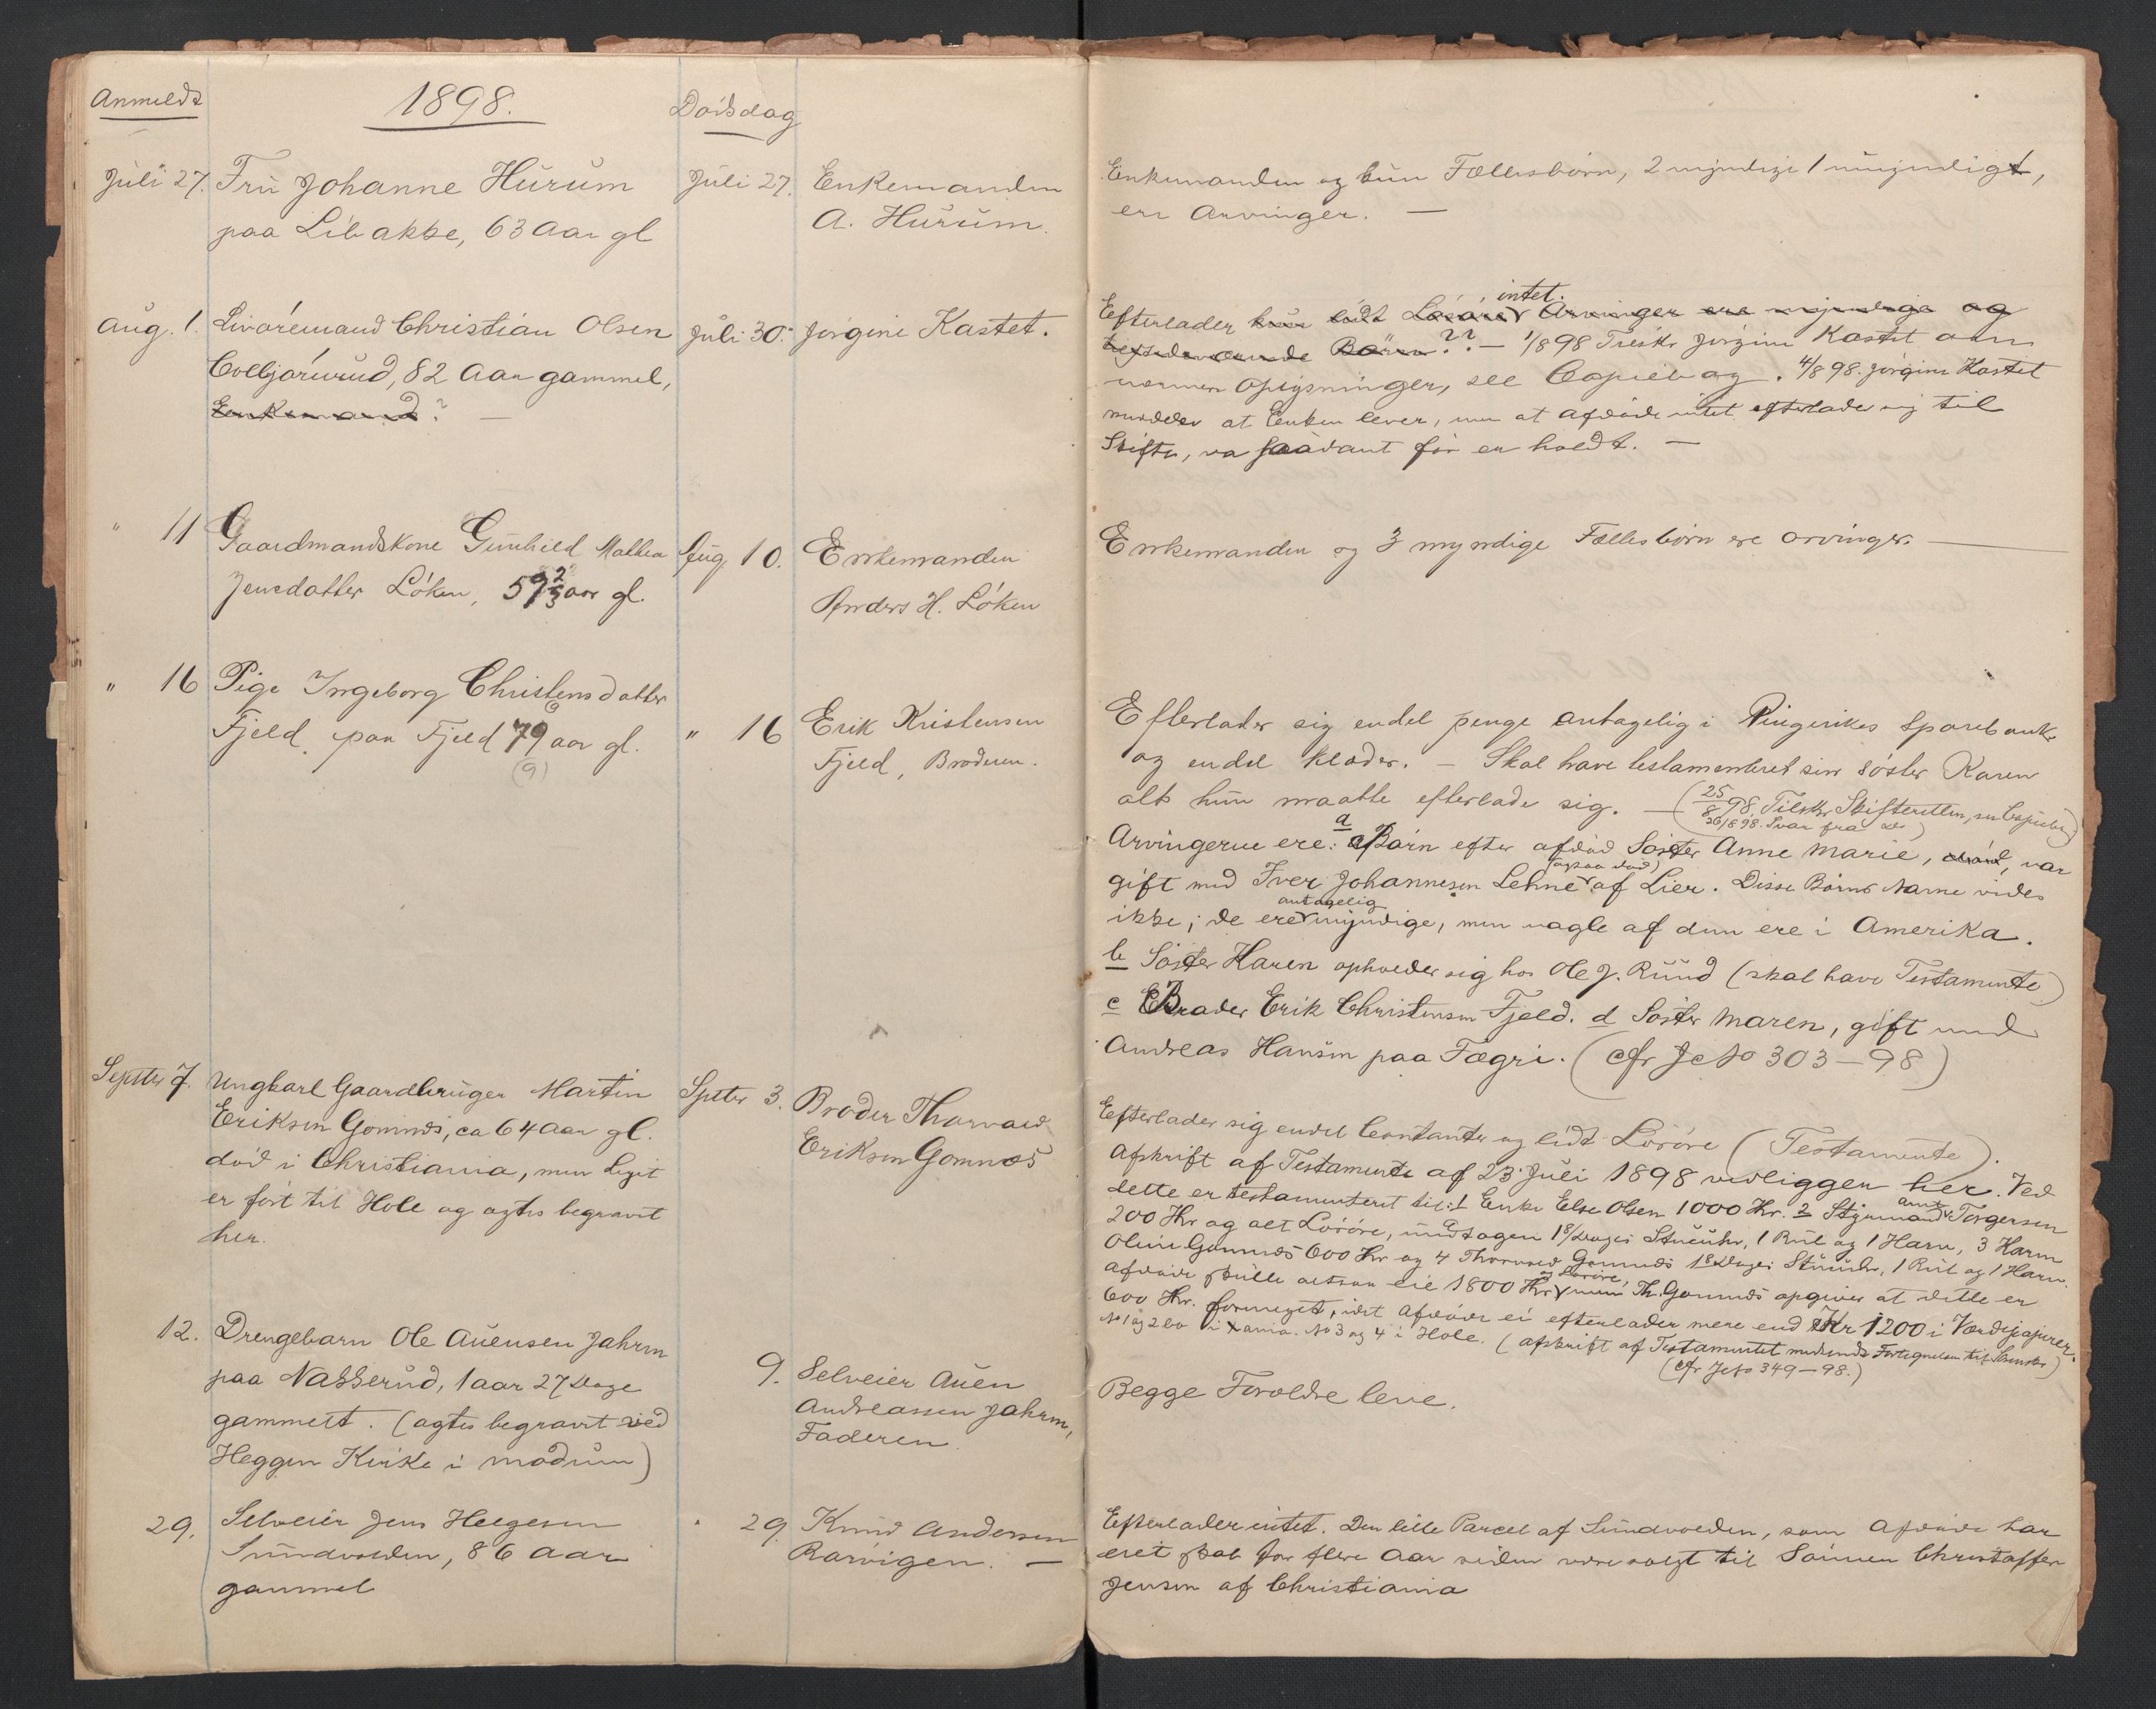 Anmeldt
1898.
Dødsdag
Juli 27.
Fru Johanne Hurum
paa Libakke, 63 Aar gl
Juli 27.
Enkemanden
A. Hurum.
Enkemanden og hun Fællesbørn, 2 myndige 1 umyndigt,
ere Arvinger. —
Aug. 1.
Livøremand Christian Olsen
Colbjørnrud, 82 Aar gammel,
Enkemand? —
Juli 30.
Jørgine Kastet.
intet.
Efterlader kun lidt Løsøre Arvinger ere myndige og
Børn?? — 1/8 98 Tilskr. Jørgine Kastet om
nærmere Oplysninger, see Copiebog. 4/8 98. Jørgine Kastet
meddeler at Enken lever, men at afdøde intet efterlader sig til
Skifte, da saadant før er holdt. —
" 11
Gaardmandskone Gunhild Mathea
Jensdatter Løken, 57 2/3 aar gl.
Aug 10.
Enkemanden
Anders H. Løken
Enkemanden og 3 myndige Fællesbørn ere arvinger. —
" 16
Pige Ingeborg Christensdatter
Fjeld paa Fjeld 79 aar gl.
(9)
" 16
Erik Kristensen
Fjeld, Broderen.
Efterlader sig endel penge antagelig i Ringerikes Sparebank
og endel klæder. — Skal have testamenteret sin søster Karen
alt hun maatte efterlade sig. — (25/8 98 Tilskr. Skifteretten, se Copiebog)
26/8 98. Svar fra do)
Arvingerne ere: a Børn efter afdød Søster Anne Marie, død, var
(ogsaa død)
gift med Iver Johannesen Lehne af Lier. Disse Børns Navne vides
antagelig
ikke; de ere myndige, men nogle af dem ere i Amerika.
b Søster Karen opholder sig hos Ole J. Rud (skal have Testamente)
c Broder Erik Christensen Fjeld. d Søster Maren, gift med
Andreas Hansen paa Fægri. (cfr Jcto 303—98)
Septbr 7.
Ungkarl Gaardbruger Martin
Eriksen Gomnæs, ca 64 Aar gl.
død i Christiania, men Liget
er ført til Hole og agtes begravet
her.
Sptbr 3.
Broder Thorvald
Eriksen Gomnæs
Efterlader sig endel Contanter og lidt Løsøre (Testamente).
Afskrift af Testamente af 23 Juli 1898 vedligger her. Ved
dette er testamenteret til: 1 Enke Else Olsen 1000 Kr. 2 Styrmand Torgersen
200 Kr og alt Løsøre, undtagen 1 8/Dages Stueuhr, 1 Rul og 1 Harv, 3 Karen
Oline Gomnæs 600 Kr og 4 Thorvald Gomnæs 1 8 Dages Stueuhr, 1 Rul og 1 Harv.
og Løsøre,
Afdøde skulle altsaa eie 1800 Kr men Th. Gomnæs opgiver at dette er
600 Kr. formeget, idet Afdøde ei efterlader mere end Kr 1200 i Værdipapirer.
No 1 og 2 bo i Xania. No 3 og 4 i Hole. (afskrift af Testamentet medsendt Fortegnelsen til)
(cfr Jcto 349—98.)
12.
Drengebarn Ole Auensen Jahren
paa Nakkerud, 1 aar 27 Dage
gammelt. (agtes begravet ved
Heggen Kirke i Modum)
9.
Selveier Auen
Andreassen Jahren,
Faderen.
Begge Forældre leve.
29.
Selveier Jens Helgesen
Sundvolden, 86 Aar
gammel
" 29.
Knud Andersen
Rørvigen. —
Efterlader intet. Den lille Parcel af Sundvolden, som Afdøde har
eiet skal for flere Aar siden være solgt til Sønnen Christoffer
Jensen af Christiania